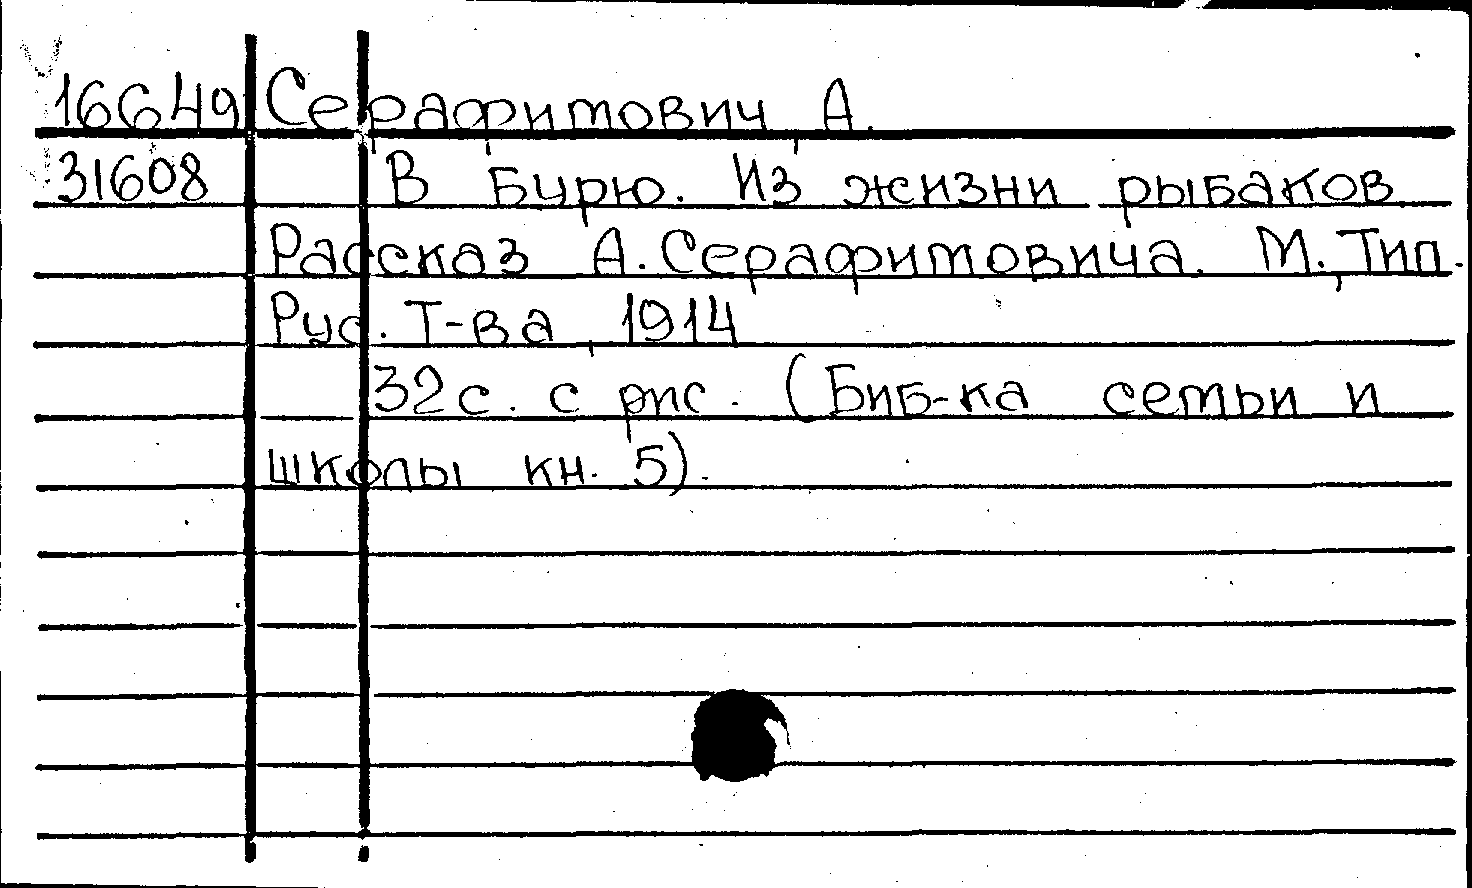 16649 Серафимович, А.
31608 В Бурю. Из жизни рыбаков
Рассказ А. Серафимовича. М., Тип.
Рус. Т-ва, 1914
32с. с рис. (Биб-ка семьи и
школы кн. 5).